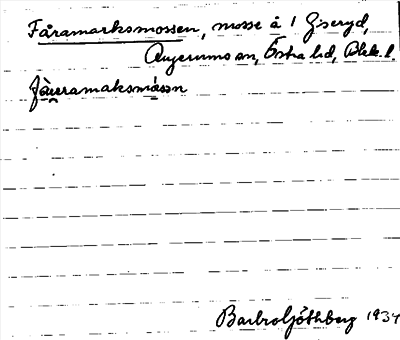 Fåramarksmossen, mosse å 1 Gseryd,
Augerums sn, Östra hd, Blek. l.
fåuramaksmåsn
Barbro Göthberg 1934